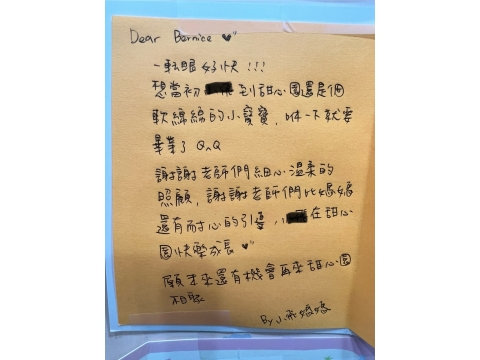 Dear Bernice
一転眼好快!!!
想當初 到甜心園還是個
軟綿綿的小寶寶,咻一下就要
畢業了QAQ
謝謝老師們細心溫柔的
照顧,謝謝老師們比媽媽
還有耐心的引導, 在甜心
園快樂成長
願未來還有機會再來甜心園
相聚
By 媽媽